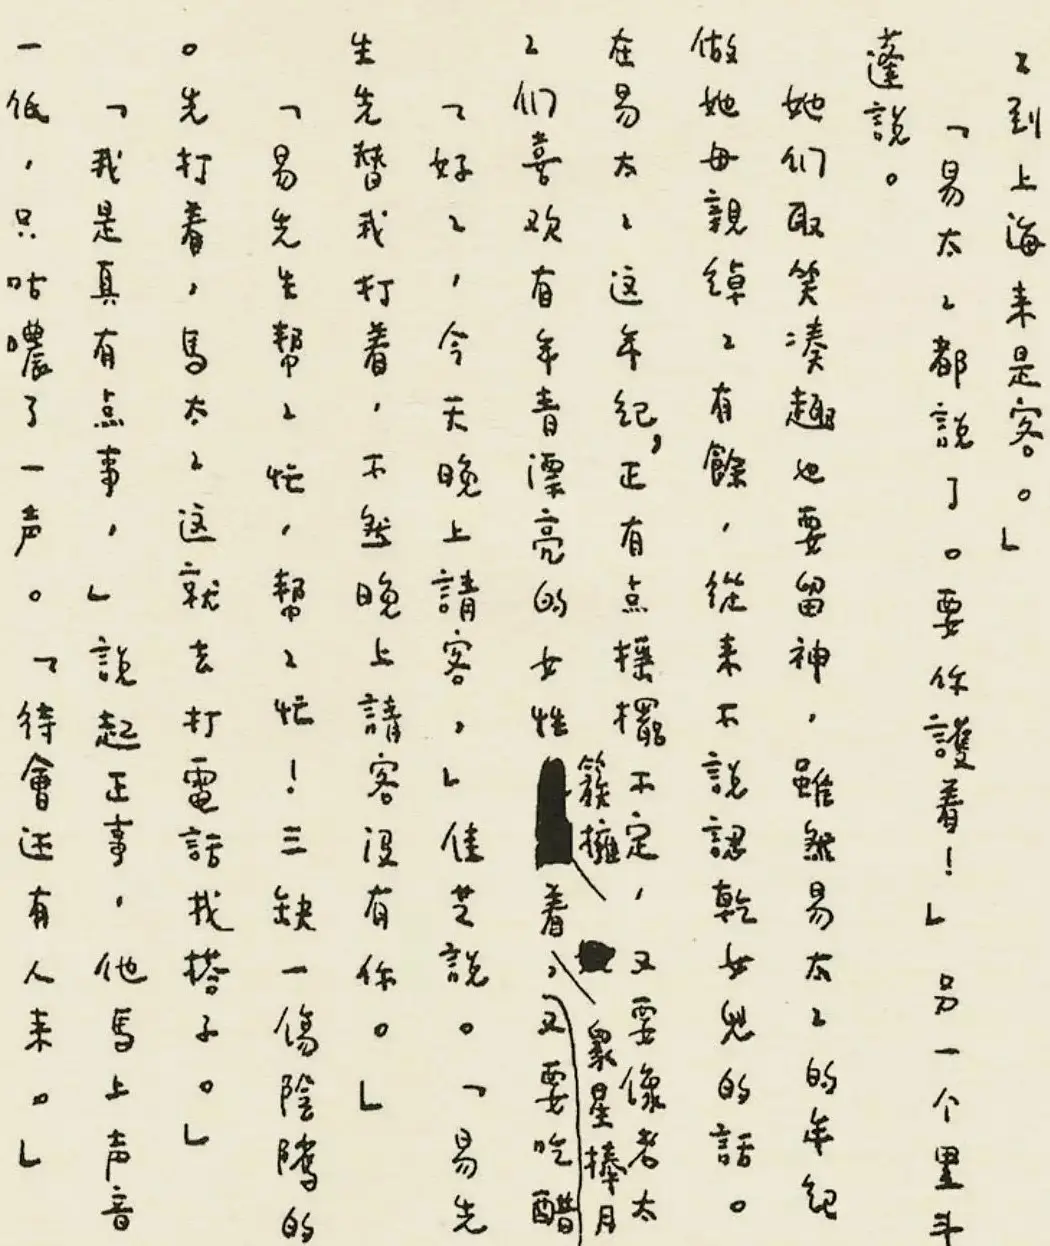 〻到上海来是客。」
「易太〻都説了。要你護着！」另一个黑斗
蓬説。
她们取笑凑趣也要留神，雖然易太〻的年紀
做她母親綽〻有餘，從来不説認乾女兒的話。
在易太〻这年紀，正有点摇擺不定，又要像老太
簇擁
衆星捧月
〻们喜欢有年青漂亮的女性着，又要吃醋
「好〻，今天晚上請客，」佳芝説。「易先
生先替我打着，不然晚上請客没有你。」
「易先生幇〻忙，幇〻忙！三缺一傷陰騭的
。先打着，馬太〻这就去打電話找搭子。」
「我是真有点事，」説起正事，他馬上声音
一低，只咕噥了一声。「待會还有人来。」